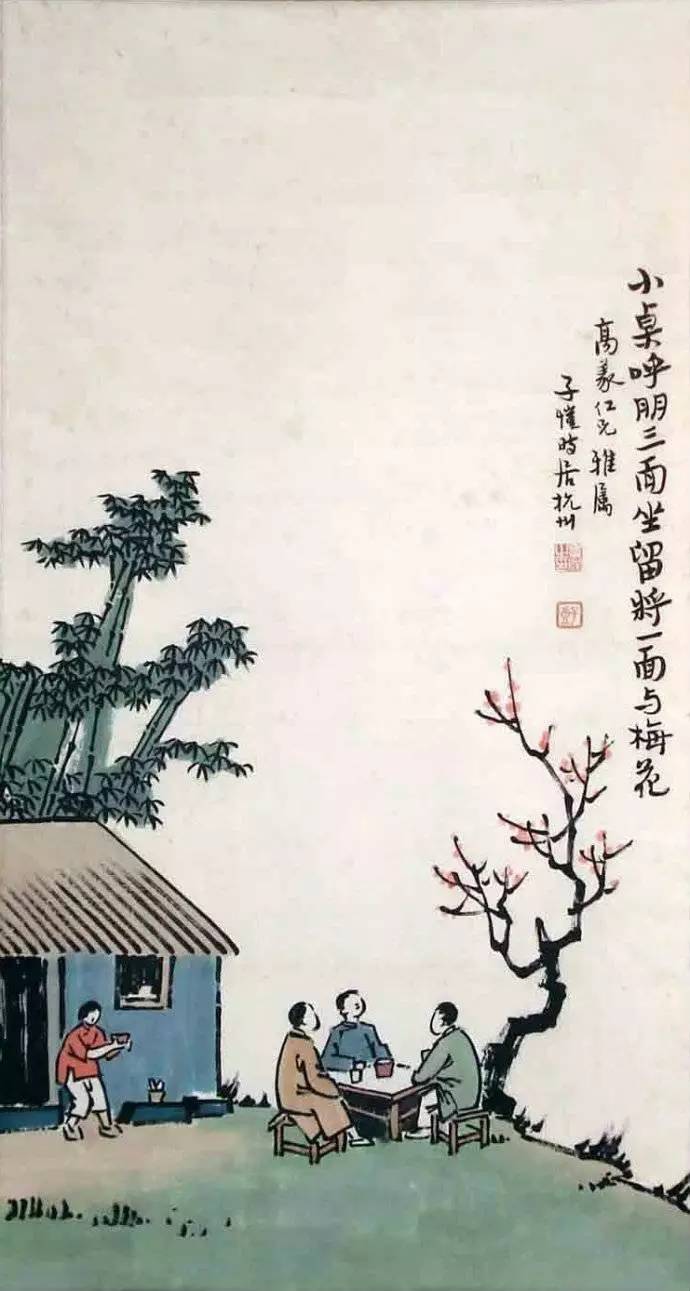 小桌呼朋三面坐留将一面与梅花
高义仁兄雅属
子愷时居杭州